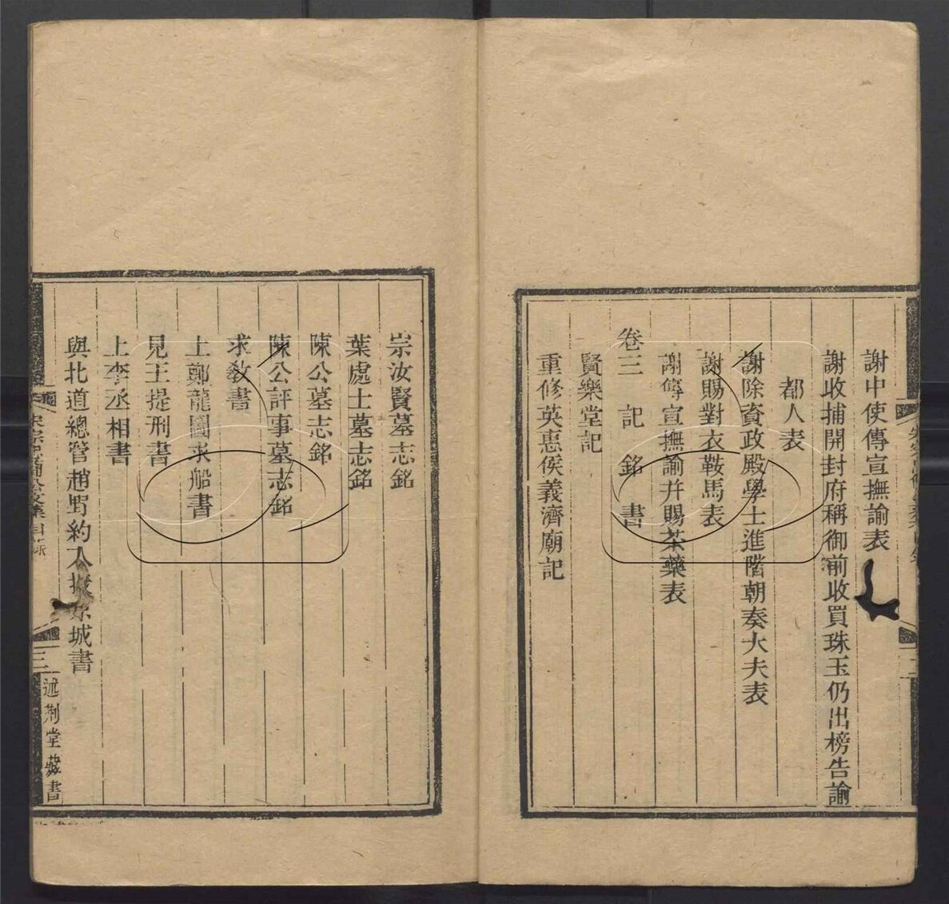 謝中使傳宣撫諭表
謝收捕開封府稱御前收買珠玉仍出榜告諭
都人表
謝除資政殿學士進階朝奏大夫表
謝賜對衣鞍馬表
謝傳宣撫諭并賜茶藥表
卷三 記 銘 書
賢樂堂記
重修英惠侯義濟廟記
宗汝賢墓志銘
葉處士墓志銘
陳公墓志銘
陳公評事墓志銘
求教書
上鄭龍圖求船書
見王提刑書
上李丞相書
與北道總管趙野約入援京城書
三
述荆堂藏書